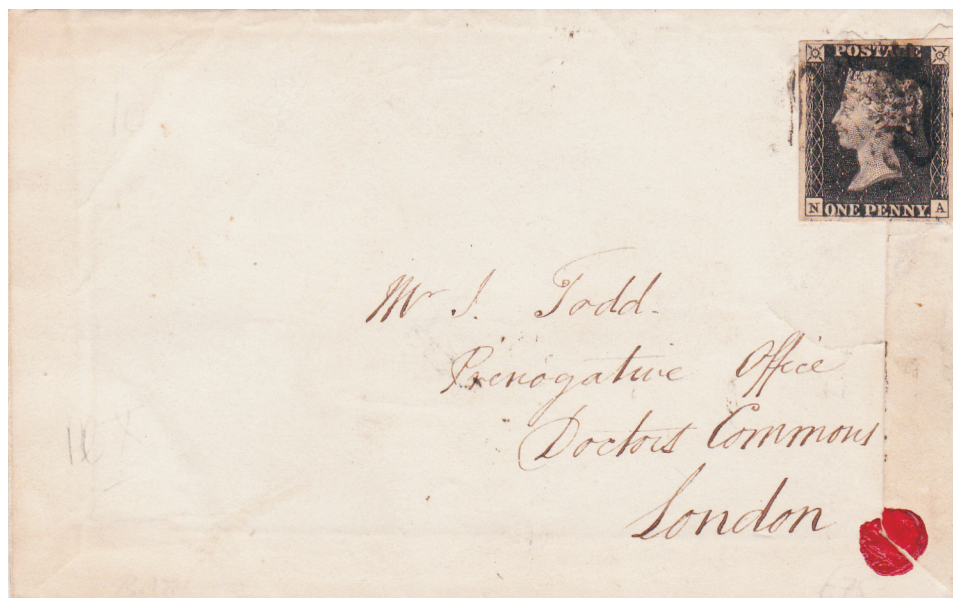 POSTAGE
N ONE PENNY A
Mr J. Todd.
Prerogative Office
Doctors Commons
London